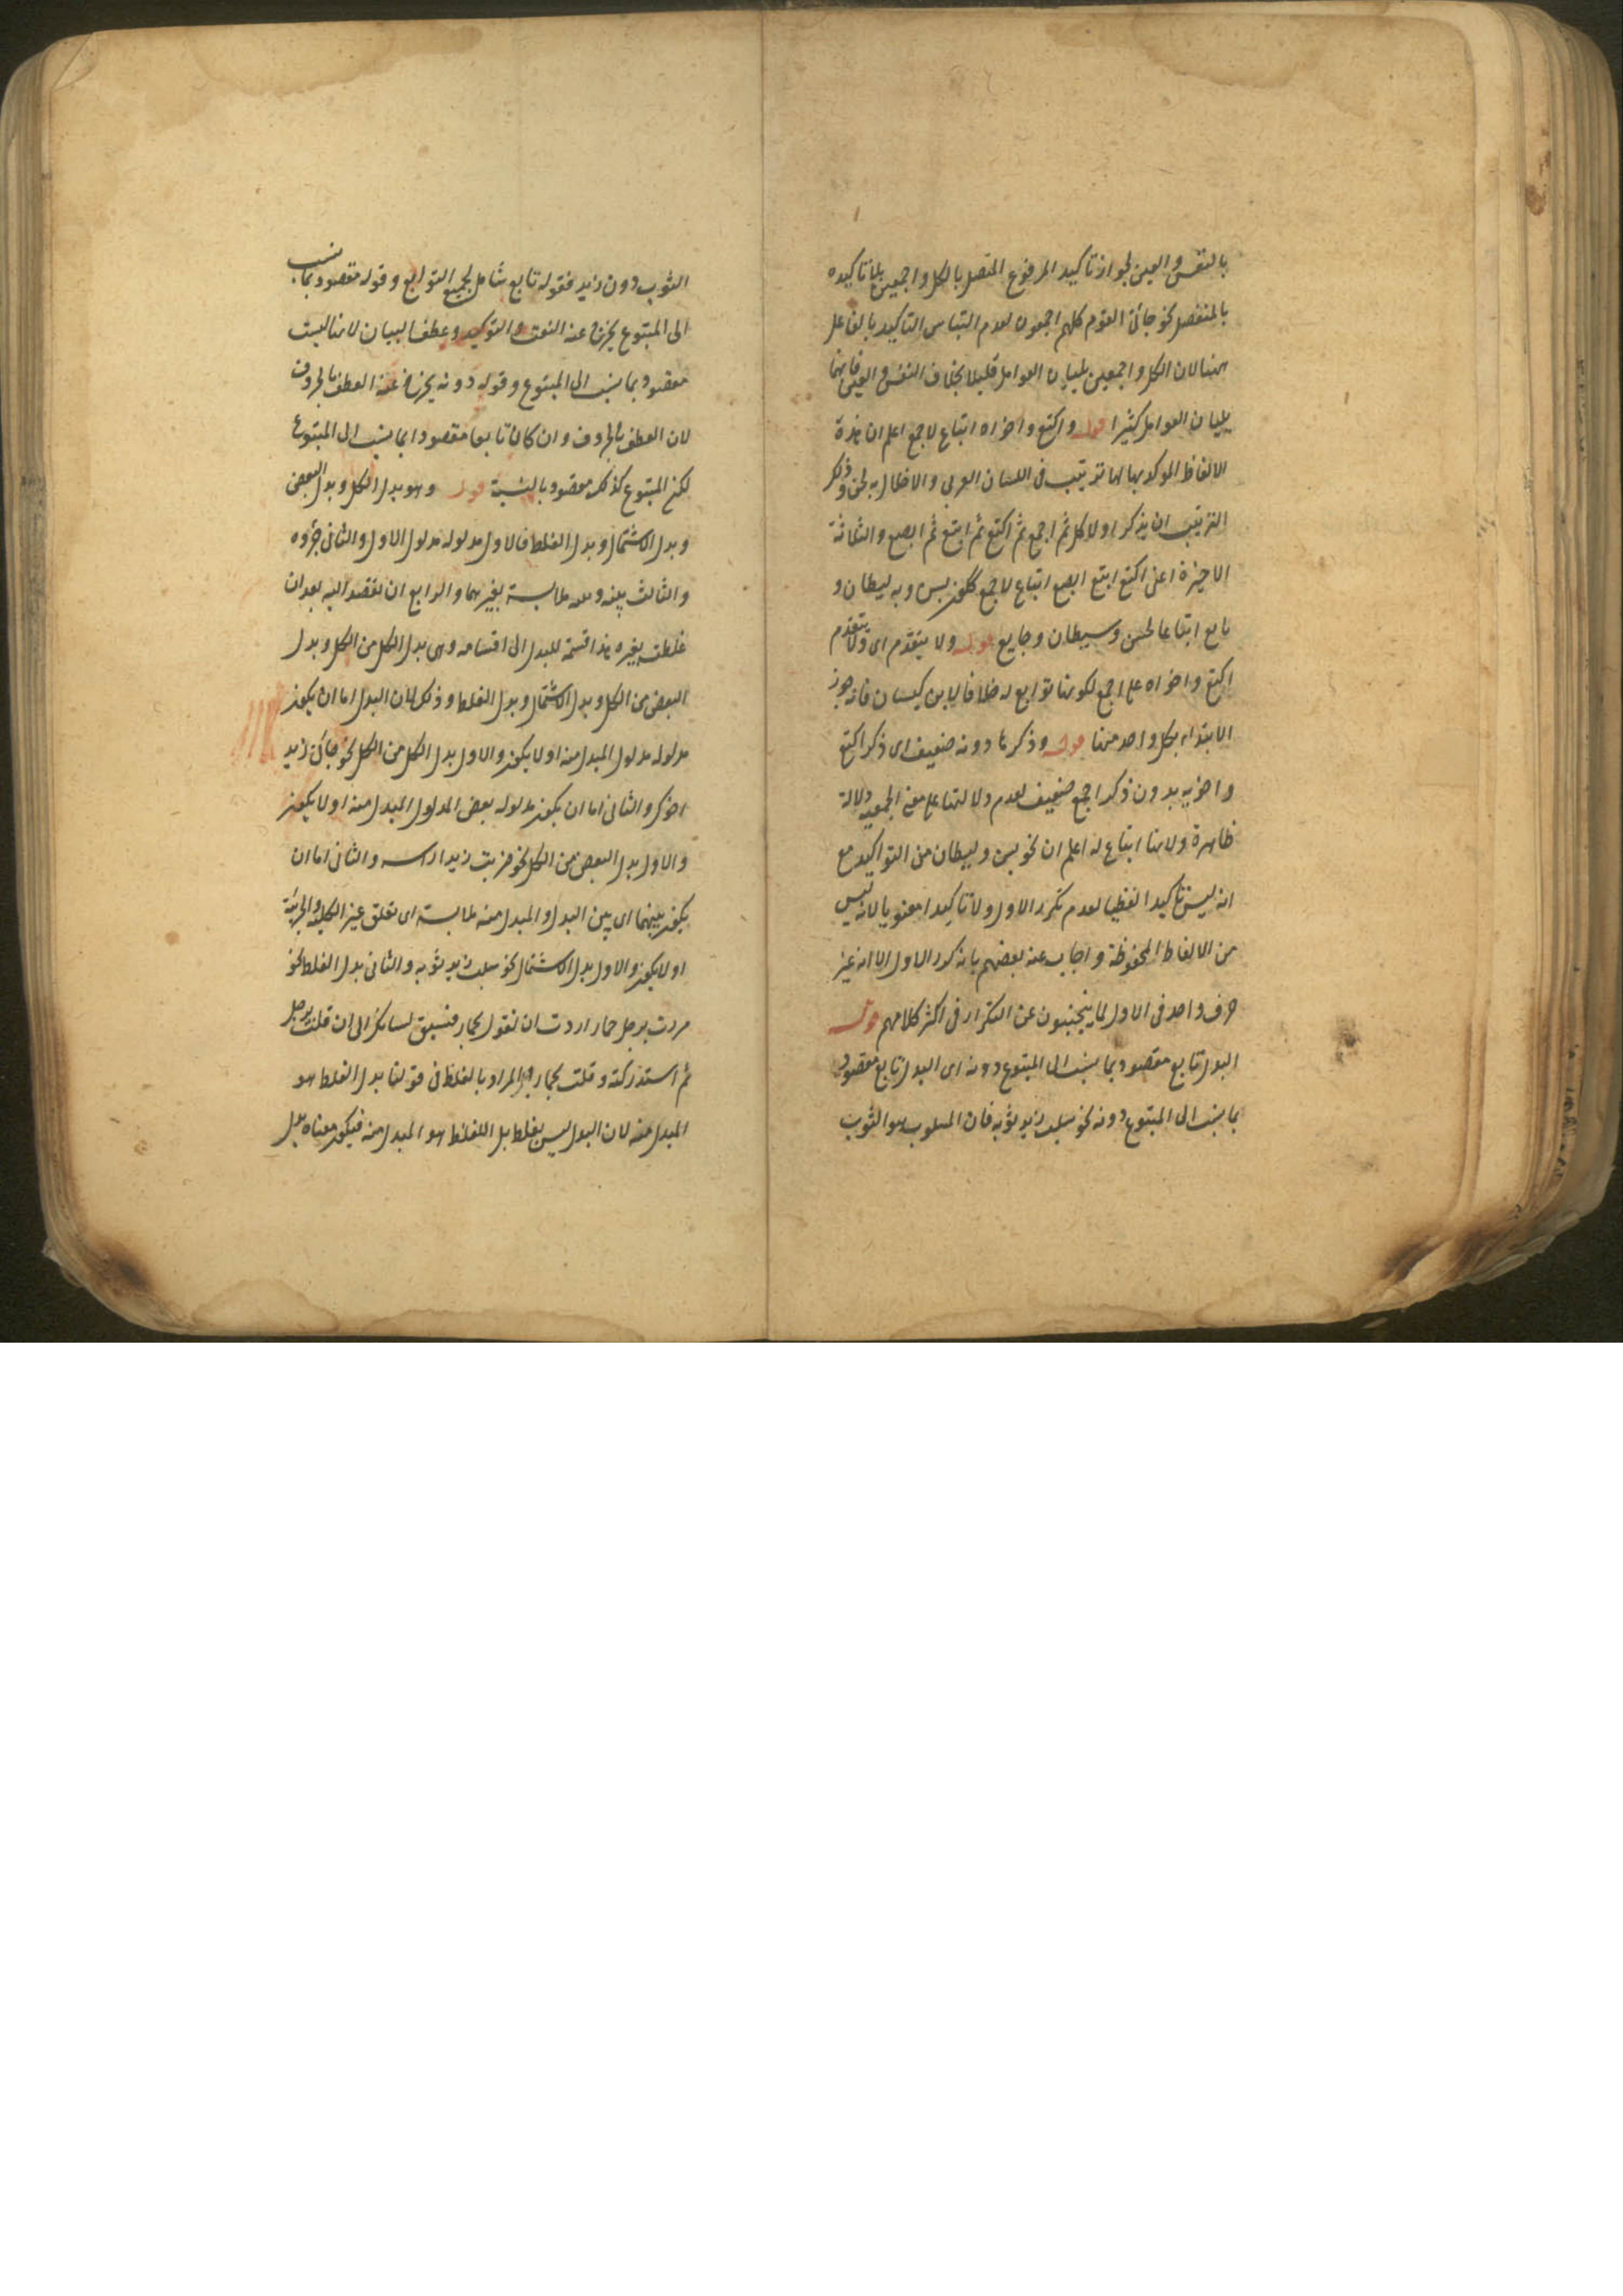 بالنفس والعين لجواز تاكيد المرفوع المتصل بالكل واجمعين بلا تاكيده
بالمنفصل نحو جائنى القوم كلهم اجمعون لعدم التباس التاكيد بالفاعل
ههنا لان الكل واجمعين يليان العوامل قليلا بخلاف النفس والعين فانهما
يليان العوامل كثيرا قوله واكتع واخواه اتباع لاجمع اعلم ان هذه
الالفاظ الموكد بها لها ترتيب فى اللسان العربى والاخلال به لحن وذكر
الترتيب ان يذكر اولا كل ثم اجمع ثم اكتع ثم ابتع ثم ابصع والثلاثة
الاخيرة اعنى اكتع ابتع ابصع اتباع لاجمع كقوله بسن وبه ليطان و
نايع اتباعا لحسن وشيطان وجايع قوله ولا يتقدم اى ولا يتقدم
اكتع واخواه على اجمع لكونها توابع له خلافا لابن كيسان فانه جوز
الابتداء بكل واحد منها قوله وذكرها دونه ضعيف اى ذكر اكتع
واخويه بدون ذكر اجمع ضعيف لعدم دلالتها على معنى الجمعية دلالة
ظاهرة ولانها اتباع له اعلم ان نحو بسن وليطان من التواكيد مع
انه ليس تاكيدا لفظيا لعدم تكرر الاول ولا تاكيدا معنويا لانه ليس
من الالفاظ المحفوظة واجاب عنه بعضهم بانه كرر الاول الا انه غير
حرف واحد فى الاول لما يتجنبون عن التكرار فى اكثر كلامهم قوله
البدل تابع مقصود بما ينسب الى المتبوع دونه اى البدل تابع مقصود
بما ينسب الى المتبوع دونه نحو سلب زيد ثوبه فان المسلوب هو الثوب
الثوب دون زيد فقوله تابع شامل لجميع التوابع وقوله مقصود بما نسب
الى المتبوع يخرج عنه النعت والتوكيد وعطف البيان لانها ليست
مقصود بما ينسب الى المتبوع وقوله دونه يخرج عنه العطف بالحروف
لان العطف بالحروف وان كان تابعا مقصودا بما ينسب الى المتبوع
لكن المتبوع كذلك مقصود بالنسبة قوله وهو بدل الكل وبدل البعض
وبدل الاشتمال وبدل الغلط فالاول مدلوله مدلول الاول والثانى جزؤه
والثالث بينه وبينه ملابسة بغيرهما والرابع ان تقصد اليه بعد ان
غلطت بغيره هذا قسمة للبدل الى اقسامه وهى بدل الكل من الكل وبدل
البعض من الكل وبدل الاشتمال وبدل الغلط وذلك لان البدل اما ان يكون
مدلوله مدلول المبدل منه او لا يكون والاول بدل الكل من الكل نحو جائنى زيد
اخوك والثانى اما ان يكون مدلوله بعض المدلول المبدل منه او لا يكون
والاول بدل البعض من الكل نحو ضربت زيدا راسه والثانى اما ان
يكون بينهما اى بين البدل والمبدل منه ملابسة اى تعلق غير الكلية والجزئية
او لا يكون والاول بدل الاشتمال نحو سلب زيد ثوبه والثانى بدل الغلط نحو
مررت برجل حمار اردت ان تقول بحمار فسبق لسانك الى ان قلت برجل
ثم استدركته وقلت بحمار والمراد بالغلط فى قولنا بدل الغلط هو
المبدل منه لان البدل ليس بغلط بل الغلط هو المبدل منه فيكون معناه بدل